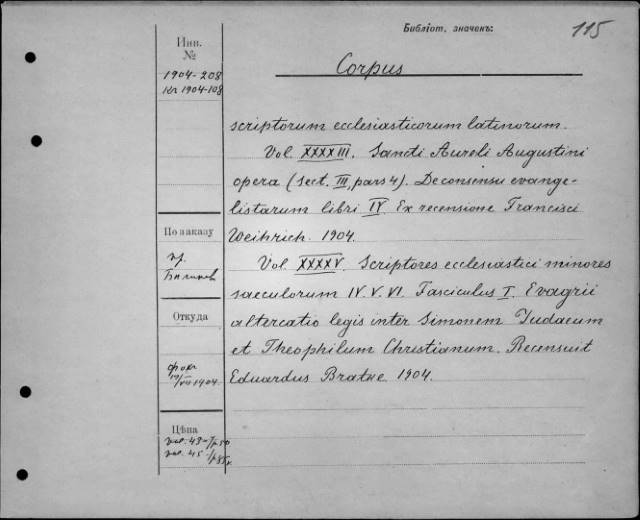 Библіот. значекъ:
115
Инв.
№
1904-208
Кг 1904-108
Corpus
scriptorum ecclesiasticorum latinorum.
Vol. XXXXIII. Sancti Aureli Augustini
opera (sect. III, pars 4). De consensu evange-
listarum libri IV. Ex recensione Francisci
Weihrich. 1904.
Vol. XXXXV. Scriptores ecclesiastici minores
saeculorum IV. V. VI. Fasciculus I. Evagrii
altercatio legis inter Simonem Iudaeum
et Theophilum Christianum. Recensuit
Eduardus Bratke 1904.
По заказу
Откуда
1904
Цѣна
vol. 43-
vol. 45